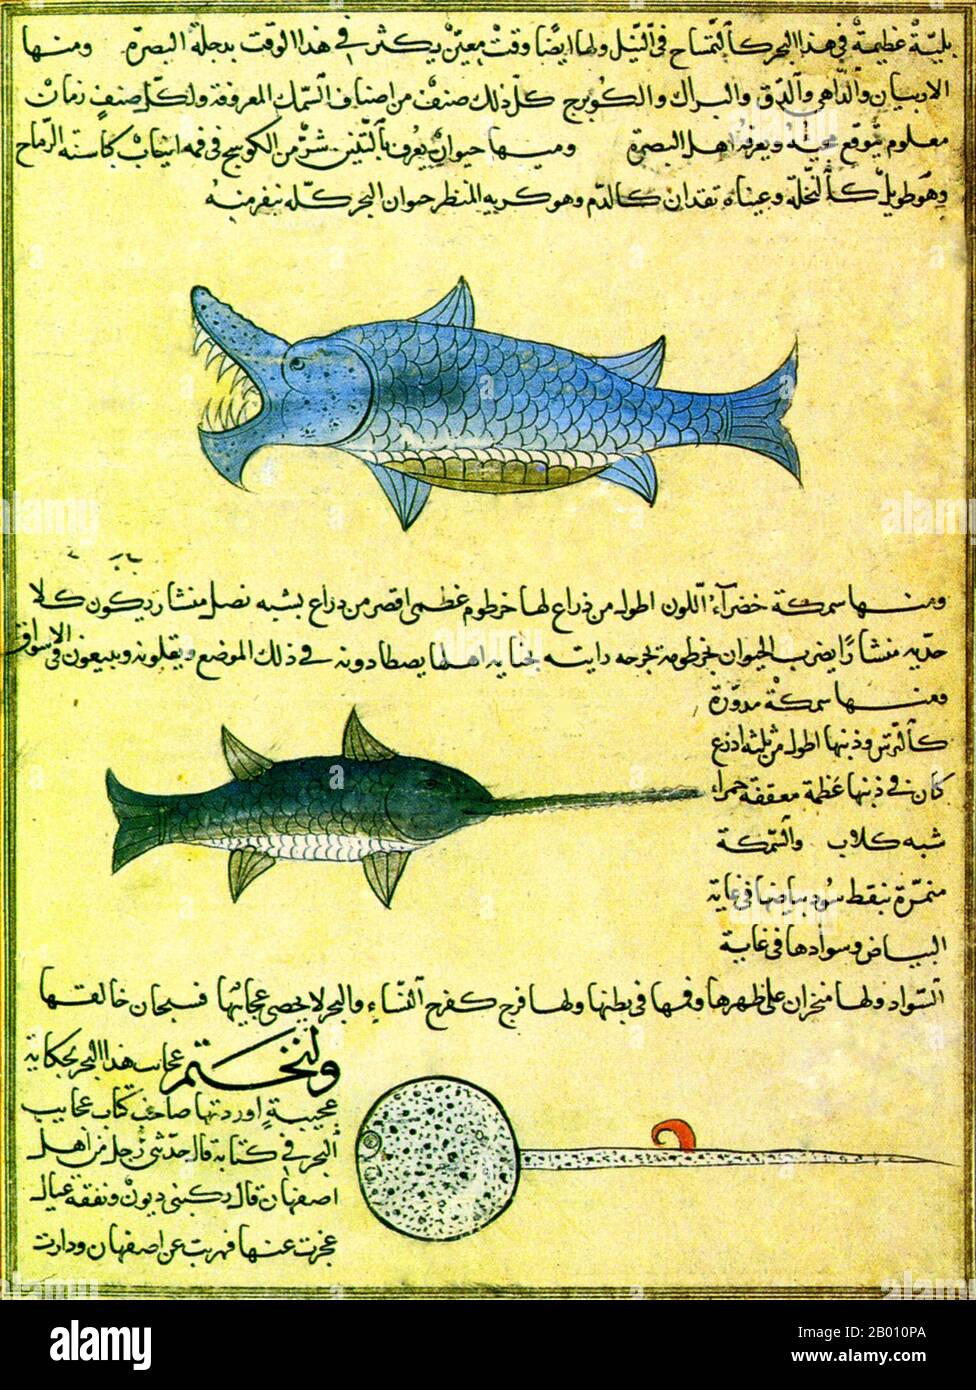 بليّة عظيمة في هذا البحر كالتمساح في النيل ولها ايضا وقت معيّن يكثر في هذا الوقت بدجلة البصرة ومنها
الاربيان والداهى والدق والبراك والكوبرج كل ذلك صنف من اصناف السمك المعروفة ولكل صنف زمان
معلوم يتوقع مجيئه ويعرفه اهل البصرة ومنها حيوان يعرف بالتنين شر من الكوسج في فمه انياب كاسنة الرماح
وهو طويل كالنخلة وعيناه تقدان كالدم وهو كريه المنظر حيوان البحر كله ينفر منه
ومنها سمكة خضراء اللون اطول من ذراع لها خرطوم عظمى اقصر من ذراع يشبه نصل منشار يكون كلا
حديه منشارا يضرب الحيوان بخرطومه يجرحه رايته اهلها يصطادونه في ذلك الموضع ويقلونه ويبيعون في الاسواق
ومنها سمكة مدوّرة
كالترس وذنبها اطول من ثلثة اذرع
كان في ذنبها عظمة معقفة حمراء
شبه كلاب والسمكة
منمرة بنقط سود بياضها في غاية
البياض وسوادها في غاية
السواد ولها منخران على ظهرها وفمها في بطنها ولها فرج كفرج النساء والبحر لا يحصى عجائبها فسبحان خالقها
ولنختم عجائب هذا البحر بحكاية
عجيبة اوردتها صاحب كتاب عجايب
البحر في كتابه قال حدثنى رجل من اهل
اصفهان قال ركبنى ديون ونفقة عيال
عجزت عنها فهربت عن اصفهان ودارت
alamy
Image ID: 2B010PA
www.alamy.com